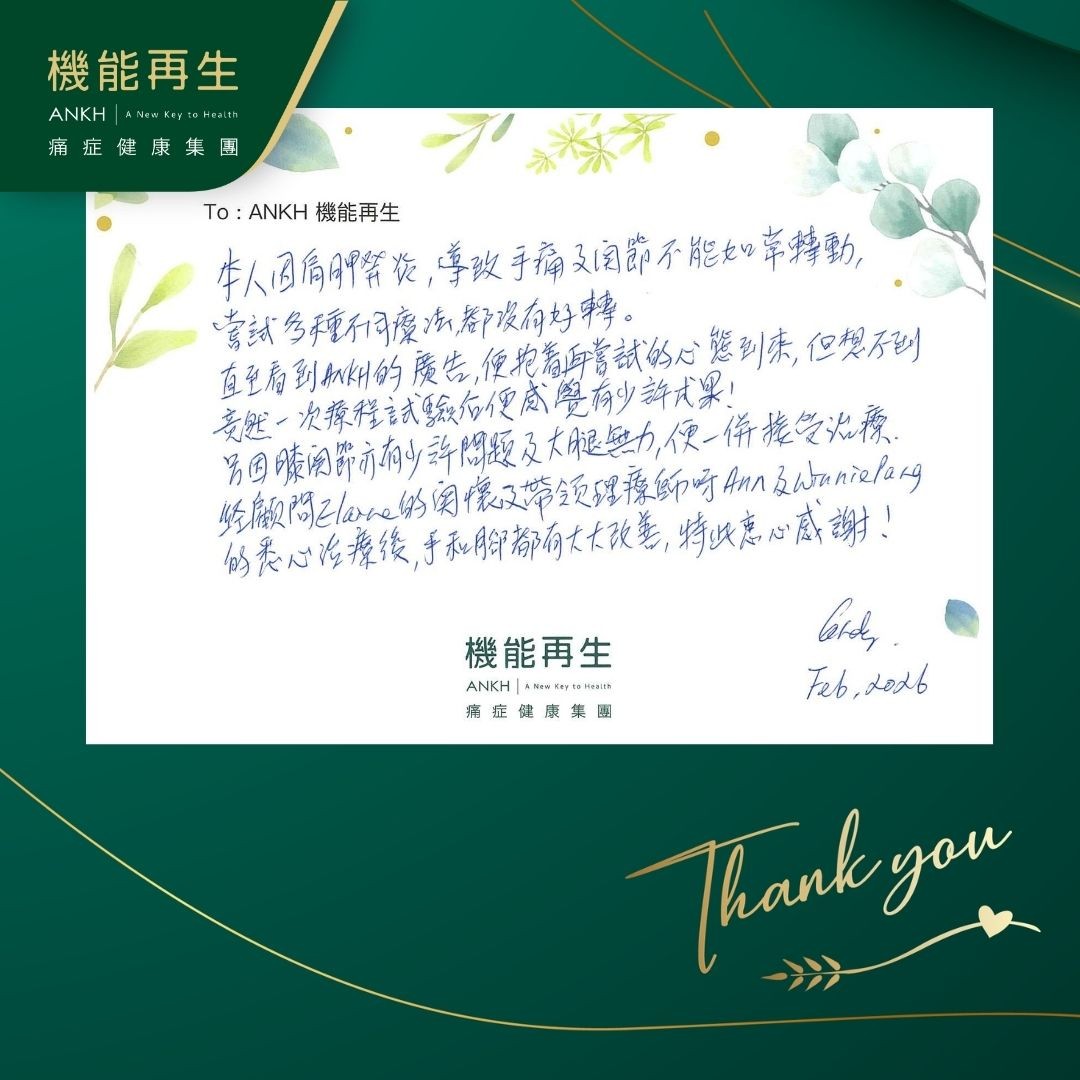 機能再生
ANKH | A New Key to Health
痛症健康集團
To : ANKH 機能再生
本人因肩胛發炎，導致手痛及関節不能如常轉動，
嘗試多種不同療法，都沒有好轉。
直至看到ANKH的廣告，便抱着再嘗試的心態到來，但想不到
竟然一次療程試驗后便感覺有少許成果！
另因膝関節亦有少許問題及大腿無力，便一併接受治療．
経顧問Elaine的関懷及帶領理療師 Ann及Winnie Pang
的悉心治療後，手和腳都有大大改善，特此 心感謝！
Feb, 2026
機能再生
ANKH | A New Key to Health
痛症健康集團
Thank you